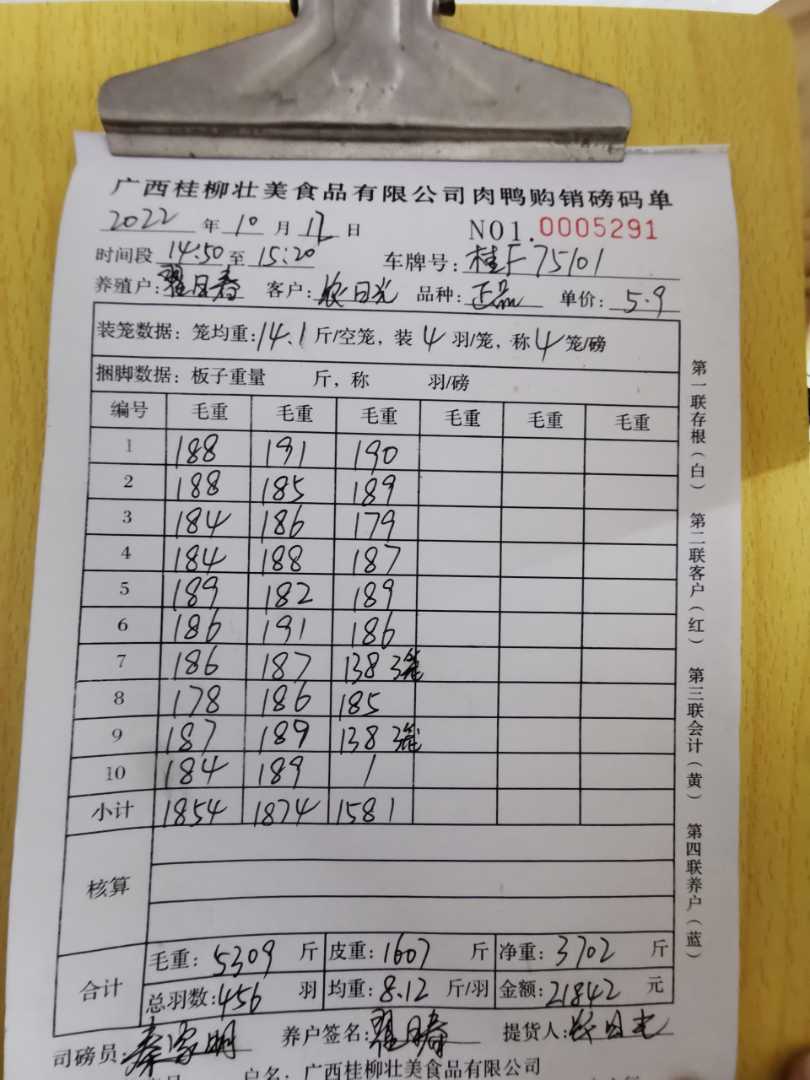 广西桂柳壮美食品有限公司肉鸭购销磅码单
2022 年 10 月 12 日 NO1.0005291
时间段 14:50 至 15:20 车牌号: 桂F75101
养殖户: 翟日春 客户: 农日光 品种: 正品 单价: 5.9
装笼数据: 笼均重: 14.1 斤/空笼, 装 4 羽/笼, 称 4 笼/磅
捆脚数据: 板子重量 斤, 称 羽/磅
编号 毛重 毛重 毛重 毛重 毛重 毛重
1 188 191 190
2 188 185 189
3 184 186 179
4 184 188 187
5 189 182 189
6 186 191 186
7 186 187 138 3笼
8 178 186 185
9 187 189 138 3笼
10 184 189 /
小计 1854 1874 1581
核算
合计 毛重: 5309 斤 皮重: 1607 斤 净重: 3702 斤
总羽数: 456 羽 均重: 8.12 斤/羽 金额: 21842 元
司磅员: 秦家明 养户签名: 翟日春 提货人: 农日光
户名: 广西桂柳壮美食品有限公司
第一联存根(白) 第二联客户(红) 第三联会计(黄) 第四联养户(蓝)